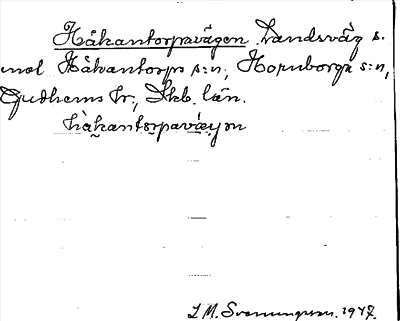 Håkantorpavägen. Landsväg s.
mot Håkantorps s:n, Hornborga s:n,
Gudhems hr, Skb. län.
håkantorpavæyon
I. M. Svenungsson. 1947.